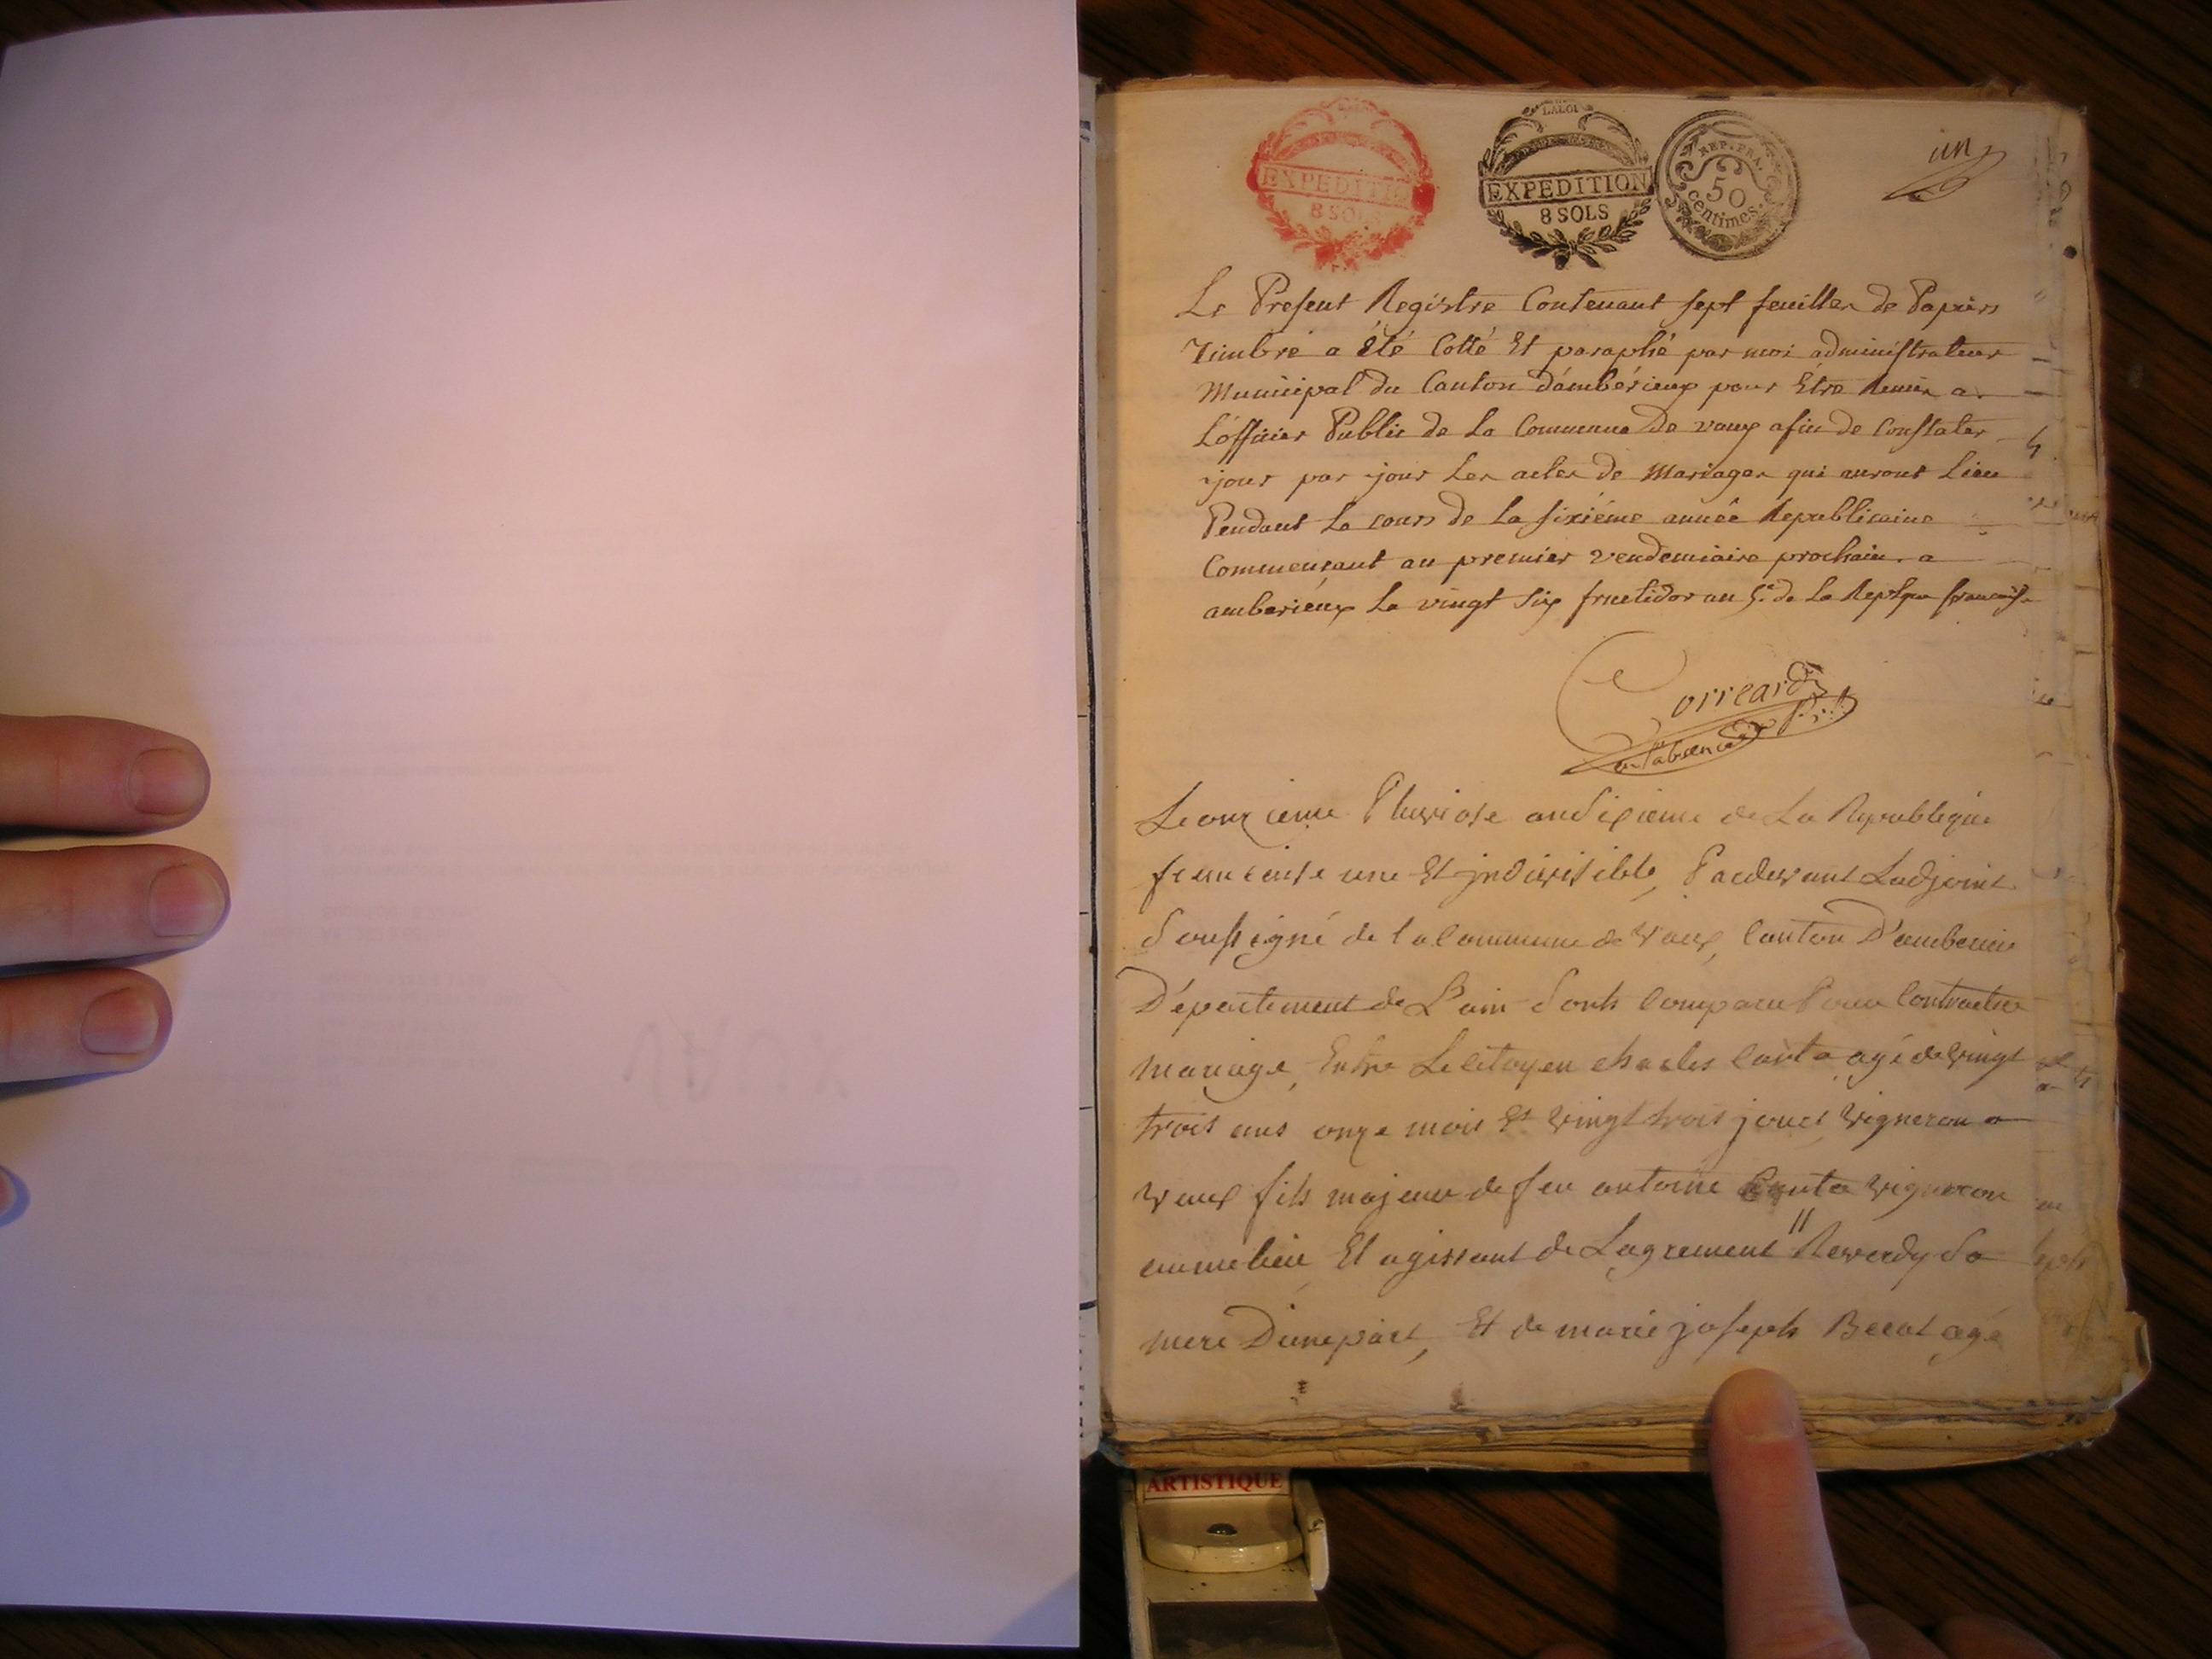 LA LOI
EXPEDITION
8 SOLS
EXPEDITION
8 SOLS
REP. FRA.
50
centimes.
un
Le Present Registre Contenant sept feuilles de Papiers
Timbré a été Cotté Et paraphé par moi administrateur
Municipal du Canton d'ambérieux pour Etre Remis a
L'officier Public de La Commune De vaux afin de Constater
jour par jour Les actes de Mariages qui auront Lieu
Pendant Le cours de La sixiéme année Republicaine
Commençant au premier vendemiaire prochain. a
amberieux Le vingt six fructidor an 5.e de La Repblque francaise
Correard
en l'absence du
Le onzieme Pluviose an Sixieme de La Republique
francaise une Et jndivisible, Pardevant Ladjoint
Soussigné de la Commune de Vaux, Canton D'amberieu
Département de L'ain Sont Comparu Pour Contracter
mariage, Entre Le Citoyen charles Canta agé de Vingt
trois ans onze mois Et Vingt trois jours Vigneron a
Vaux fils majeur de feu antoine Canta Vigneron
au me lieu Et agissant de Lagrement " Reverdy Sa
mere D'une part, Et de marie joseph Berat agé
ARTISTIQUE